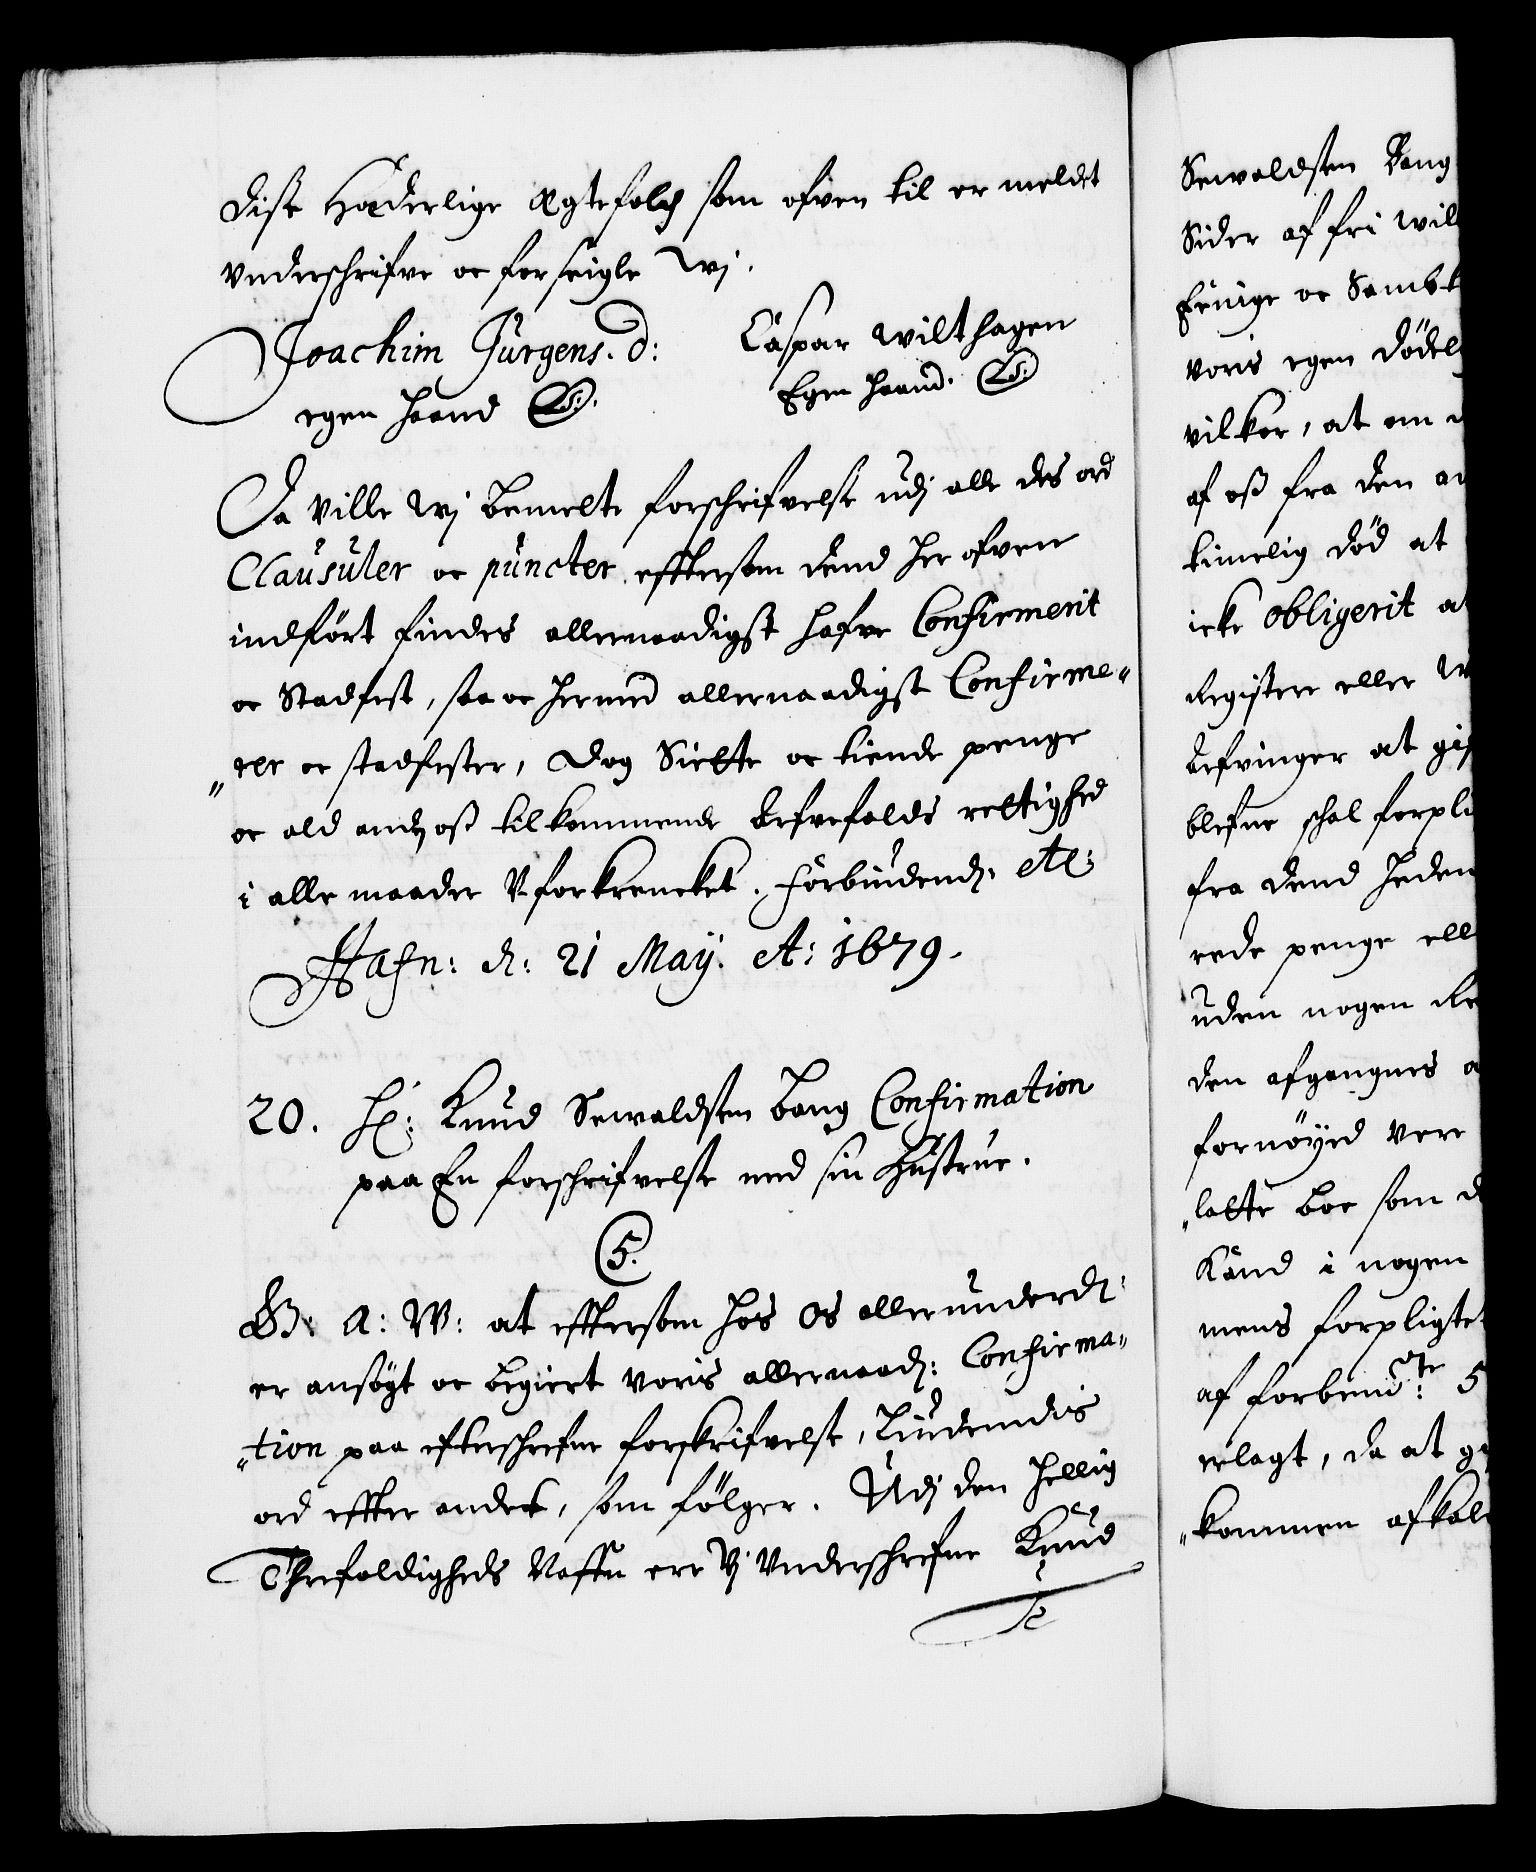 Disse Hæderlige Ægtefolch som ofven til er meldet
Underschrifve oc forseigle Wj.
Joachim Jürgens. d: Caspar Wilthagen
egen haand LS. Egen haand. LS.
Da Ville Wj bemelte forschrifvelse udj alle des ord
Clausuler oc puncter effterson dend her ofven
indført findes allernaadigst hafve Confirmerit
oc Stadfest, saa oc hermed allernaadigst Confirme„
„rer oc stadfester, Dog Siette oc tiende penge
oc ald anden oss tilkommende Arfvefalds rettighed
i alle maader Uforkrencket. Forbiudendis etc:
Hafn: d: 21 Maÿ. A: 1679.
20. Hr: Knud Sewaldsen Bang Confirmation
paa En forschrifvelse med sin Hustrue.
5.
G: A: W: at efftersom hos Os allerunderdn:
er ansøgt oc begiert voris allernaad: Confirma„
„tion paa efterschrefne forskrifvelse, Liudendis
ord effter andet, som følger. Udj den hellig
Threfoldigheds Naffn ere Vj Underschrefne Knud
Se
Sewaldsen Bang
Sider af fri Wil
Eenige oc Sambt
voris egen dødel
vilkor, at om
af oss fra den an
timelig død at
icke obligerit at
Registere eller
Arfvinger at gif
blefne schal forpli
fra dend heden
rede penge ell
uden nogen Re
den afgangnes
fornøyed vere
„latte boe som d
Kand i nogen
mens forpligtet
af forbemte: 5
erlagt, da at g
„kommen afkal